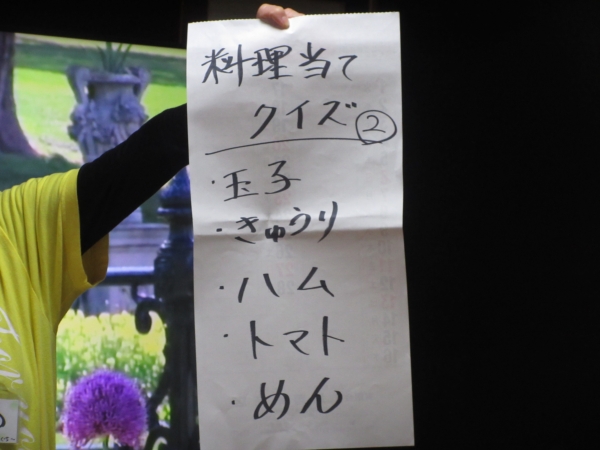 料理当て
クイズ②
・玉子
・きゅうり
・ハム
・トマト
・めん